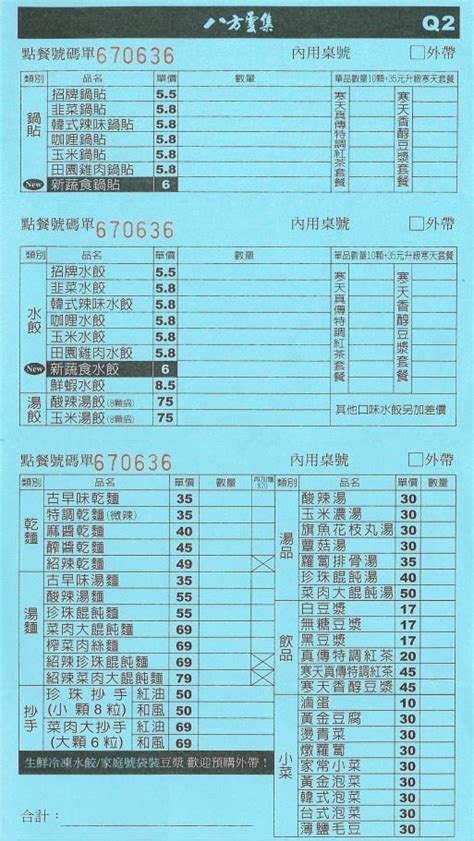 八方雲集 Q2
點餐號碼單 670636 內用桌號 □外帶
類別 品名 單價 數量 單品數量10顆+35元升級寒天套餐
鍋貼
招牌鍋貼 5.5
韭菜鍋貼 5.8
韓式辣味鍋貼 5.8
咖哩鍋貼 5.8
玉米鍋貼 5.8
田園雞肉鍋貼 5.8
New 新蔬食鍋貼 6
寒天真傳特調紅茶套餐
寒天香醇豆漿套餐
點餐號碼單 670636 內用桌號 □外帶
類別 品名 單價 數量 單品數量10顆+35元升級寒天套餐
水餃
招牌水餃 5.5
韭菜水餃 5.8
韓式辣味水餃 5.8
咖哩水餃 5.8
玉米水餃 5.8
田園雞肉水餃 5.8
New 新蔬食水餃 6
鮮蝦水餃 8.5
寒天真傳特調紅茶套餐
寒天香醇豆漿套餐
湯餃
酸辣湯餃(8顆餡) 75
玉米湯餃(8顆餡) 75
其他口味水餃另加差價
點餐號碼單 670636 內用桌號 □外帶
類別 品名 單價 數量 類別 品名 單價 數量
乾麵
古早味乾麵 35
特調乾麵(微辣) 35
麻醬乾麵 40
醡醬乾麵 45
紹辣乾麵 49
湯麵
古早味湯麵 35
酸辣湯麵 55
珍珠餛飩麵 55
菜肉大餛飩麵 69
榨菜肉絲麵 69
紹辣珍珠餛飩麵 69
紹辣菜肉大餛飩麵 79
抄手
珍珠抄手 紅油 50
(小顆8粒) 和風 50
菜肉大抄手 紅油 69
(大顆6粒) 和風 69
生鮮冷凍水餃/家庭號袋裝豆漿 歡迎預購外帶！
合計：
湯品
酸辣湯 30
玉米濃湯 30
旗魚花枝丸湯 30
蕈菇湯 30
蘿蔔排骨湯 35
珍珠餛飩湯 40
菜肉大餛飩湯 50
飲品
白豆漿 17
無糖豆漿 17
黑豆漿 17
真傳特調紅茶 20
寒天真傳特調紅茶 45
寒天香醇豆漿 45
小菜
滷蛋 10
黃金豆腐 30
燙青菜 30
燉蘿蔔 30
家常小菜 30
黃金泡菜 30
韓式泡菜 30
台式泡菜 30
薄鹽毛豆 30